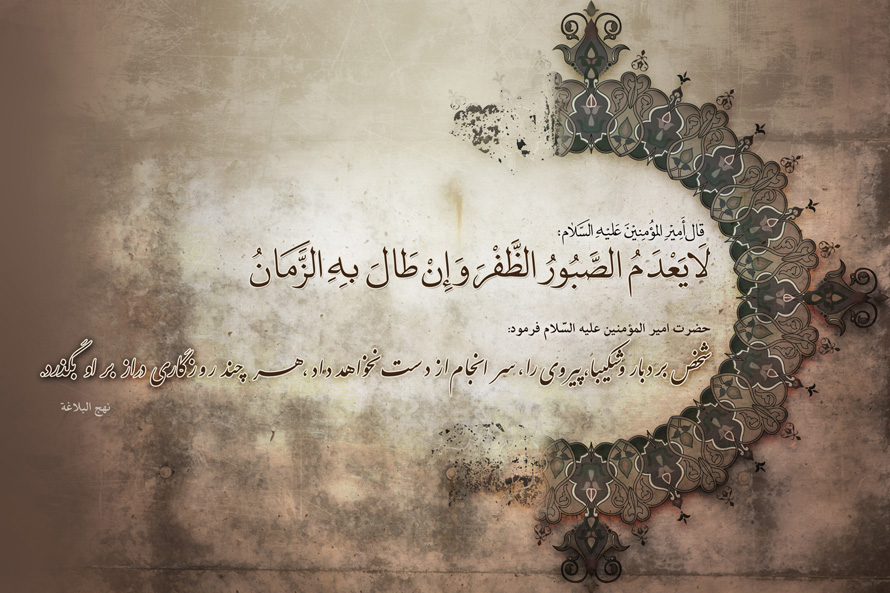 قالَ أَمِيرُ المُؤمِنِينَ عَلَيْهِ السَّلام:
لَا يَعْدَمُ الصَّبُورُ الظَّفْرَ وَإِنْ طَالَ بِهِ الزَّمَانُ
حضرت امیر المؤمنین علیه السّلام فرمود:
شخص بردبار و شکیبا، پیروی را، سر انجام از دست نخواهد داد، هر چند روزگاری دراز بر او بگذرد.
نهج البلاغة